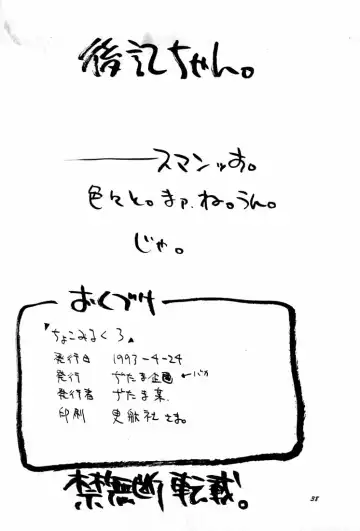 後記ちゃん。
――スマンッす。
色々と。まァ、ね。うん。
じゃ。
おくづけ
『ちょこみるく3』
発行日 1993-4-24
発行 ずたま企画 ←バカ
発行者 ずたま楽.
印刷 史敵社さま。
禁無断転載。